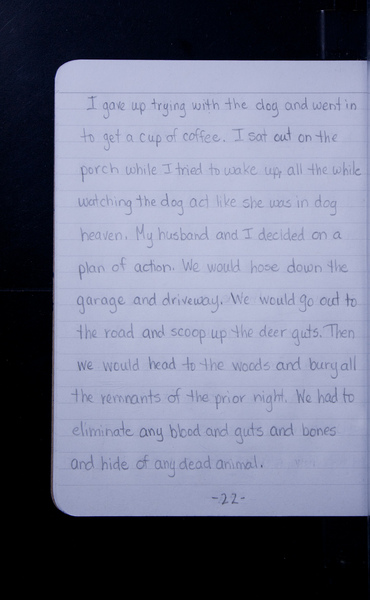 I gave up trying with the dog and went in
to get a cup of coffee. I sat out on the
porch while I tried to wake up, all the while
watching the dog act like she was in dog
heaven. My husband and I decided on a
plan of action. We would hose down the
garage and driveway. We would go out to
the road and scoop up the deer guts. Then
we would head to the woods and bury all
the remnants of the prior night. We had to
eliminate any blood and guts and bones
and hide of any dead animal.
-22-